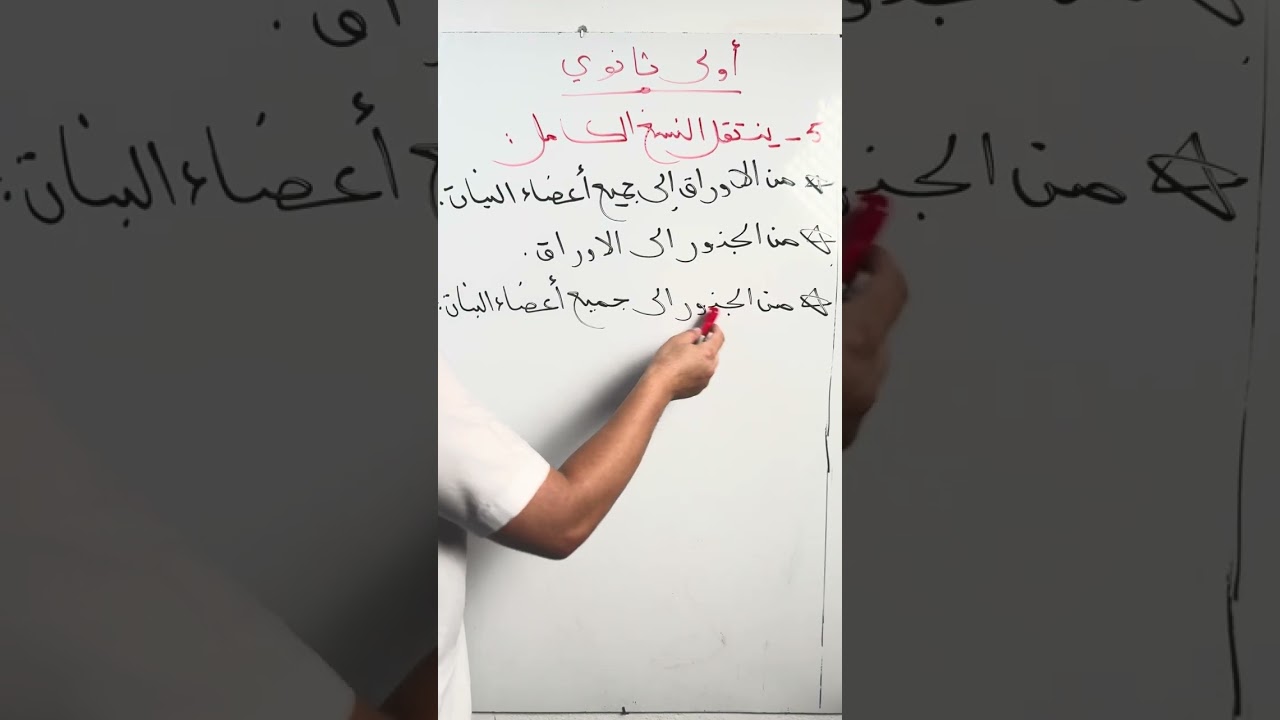 أولى ثانوي
5 - ينتقل النسغ الكامل :
من الاوراق إلى جميع أعضاء النبات.
من الجذور الى الاوراق.
من الجذور الى جميع أعضاء النبات.